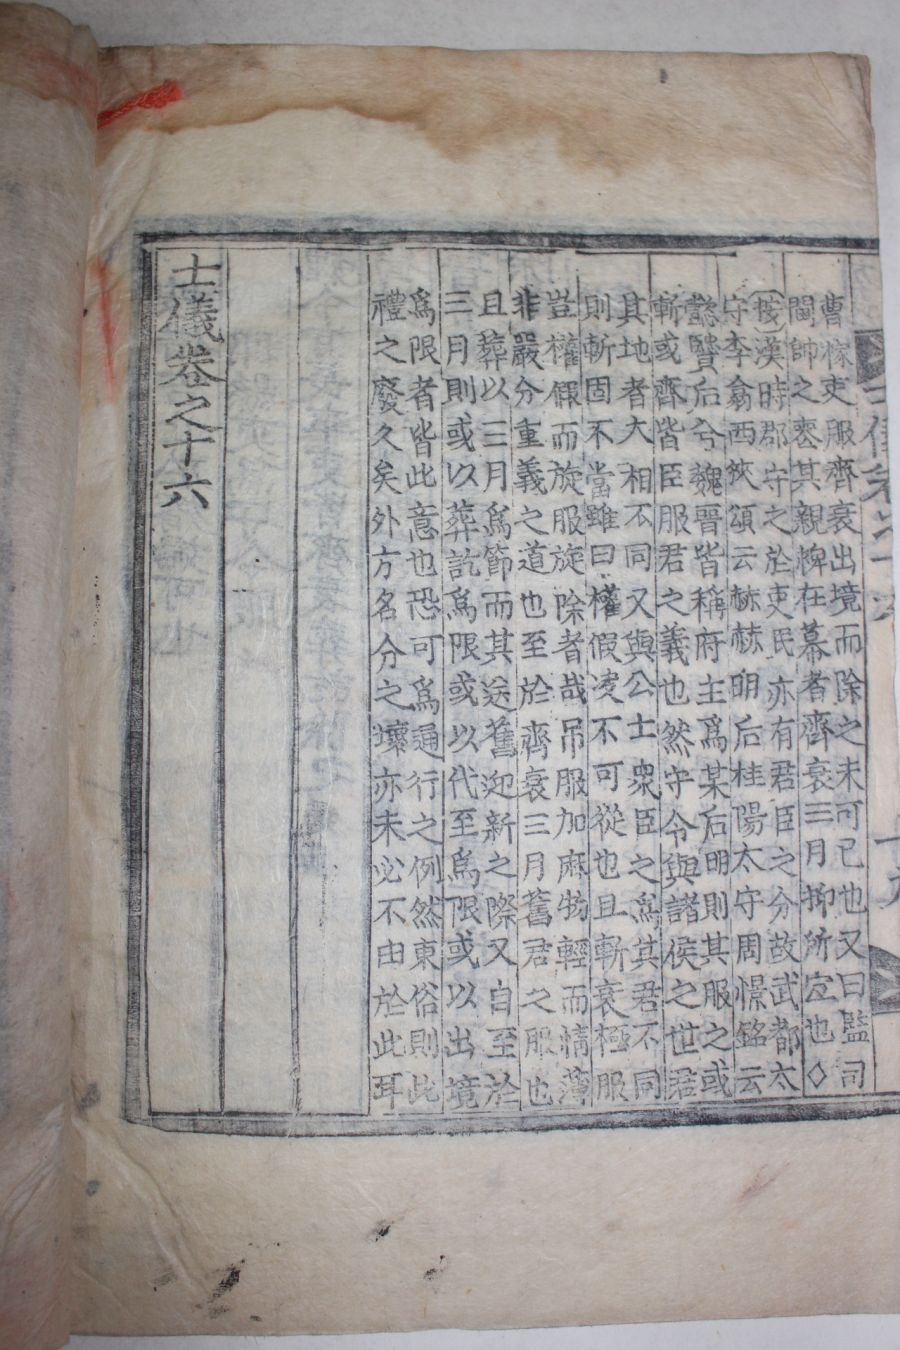 士儀卷之十六
十九
曹椽吏服齊衰出境而除之未可已也又曰監司
閫帥之喪其親裨在幕者齊衰三月抑所宜也◇
按漢時郡守之於吏民亦有君臣之分故武都太
守李翕西狹頌云赫赫明后桂陽太守周憬銘云
懿賢后兮魏晉皆稱府主爲某后明則其服之或
斬或齊皆臣服君之義也然守令與諸侯之世君
其地者大相不同又與公士衆臣之爲其君不同
則斬固不當雖曰權假决不可從也且斬衰極服
豈權假而旋服旋除者哉吊服加麻物輕而情薄
非嚴分重義之道也至於齊衰三月舊君之服也
且葬以三月爲節而其送舊迎新之際又自至於
三月則或以葬訖爲限或以代至爲限或以出境
爲限者皆此意也恐可爲通行之例然東俗則此
禮之廢久矣外方名分之壞亦未必不由於此耳
士儀卷之十六